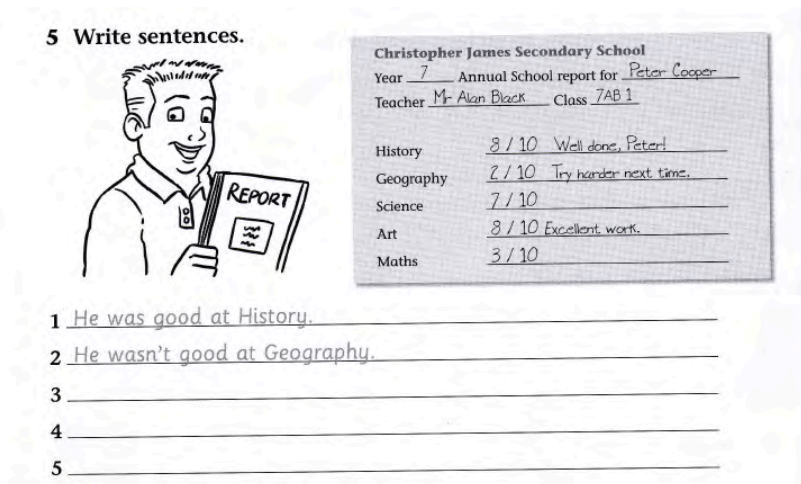 5 Write sentences.
REPORT
Christopher James Secondary School
Year 7 Annual School report for Peter Cooper
Teacher Mr Alan Black Class 7AB 1
History 8 / 10 Well done, Peter!
Geography 2 / 10 Try harder next time.
Science 7 / 10
Art 8 / 10 Excellent work.
Maths 3 / 10
1 He was good at History.
2 He wasn't good at Geography.
3
4
5